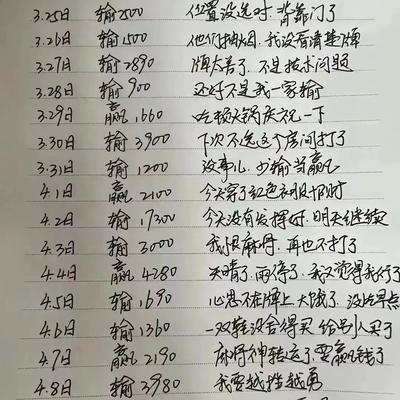 3.25日 输2500 位置没选对.背靠门了
3.26日 输1500 他们抽烟,我没看清楚牌
3.27日 输2890 牌太差了.不是技术问题
3.28日 输900 还好不是我一家输
3.29日 赢1660 吃顿火锅庆祝一下
3.30日 输3900 下次不选这个房间打了
3.31日 输1200 没事儿,少输当赢
4.1日 赢2100 今天穿了红色衣服
4.2日 输17300 今天没有发挥好,明天继续
4.3日 输3000 我恨麻将,再也不打了
4.4日 赢4280 天晴了,雨停了,我又觉得我行了
4.5日 输1690 心思不在牌上,太饿了,没吃早点
4.6日 输1360 一双鞋没舍得买 给别人买了
4.7日 赢2190 麻将神转运了,要赢钱了
4.8日 输3980 我要越挫越勇